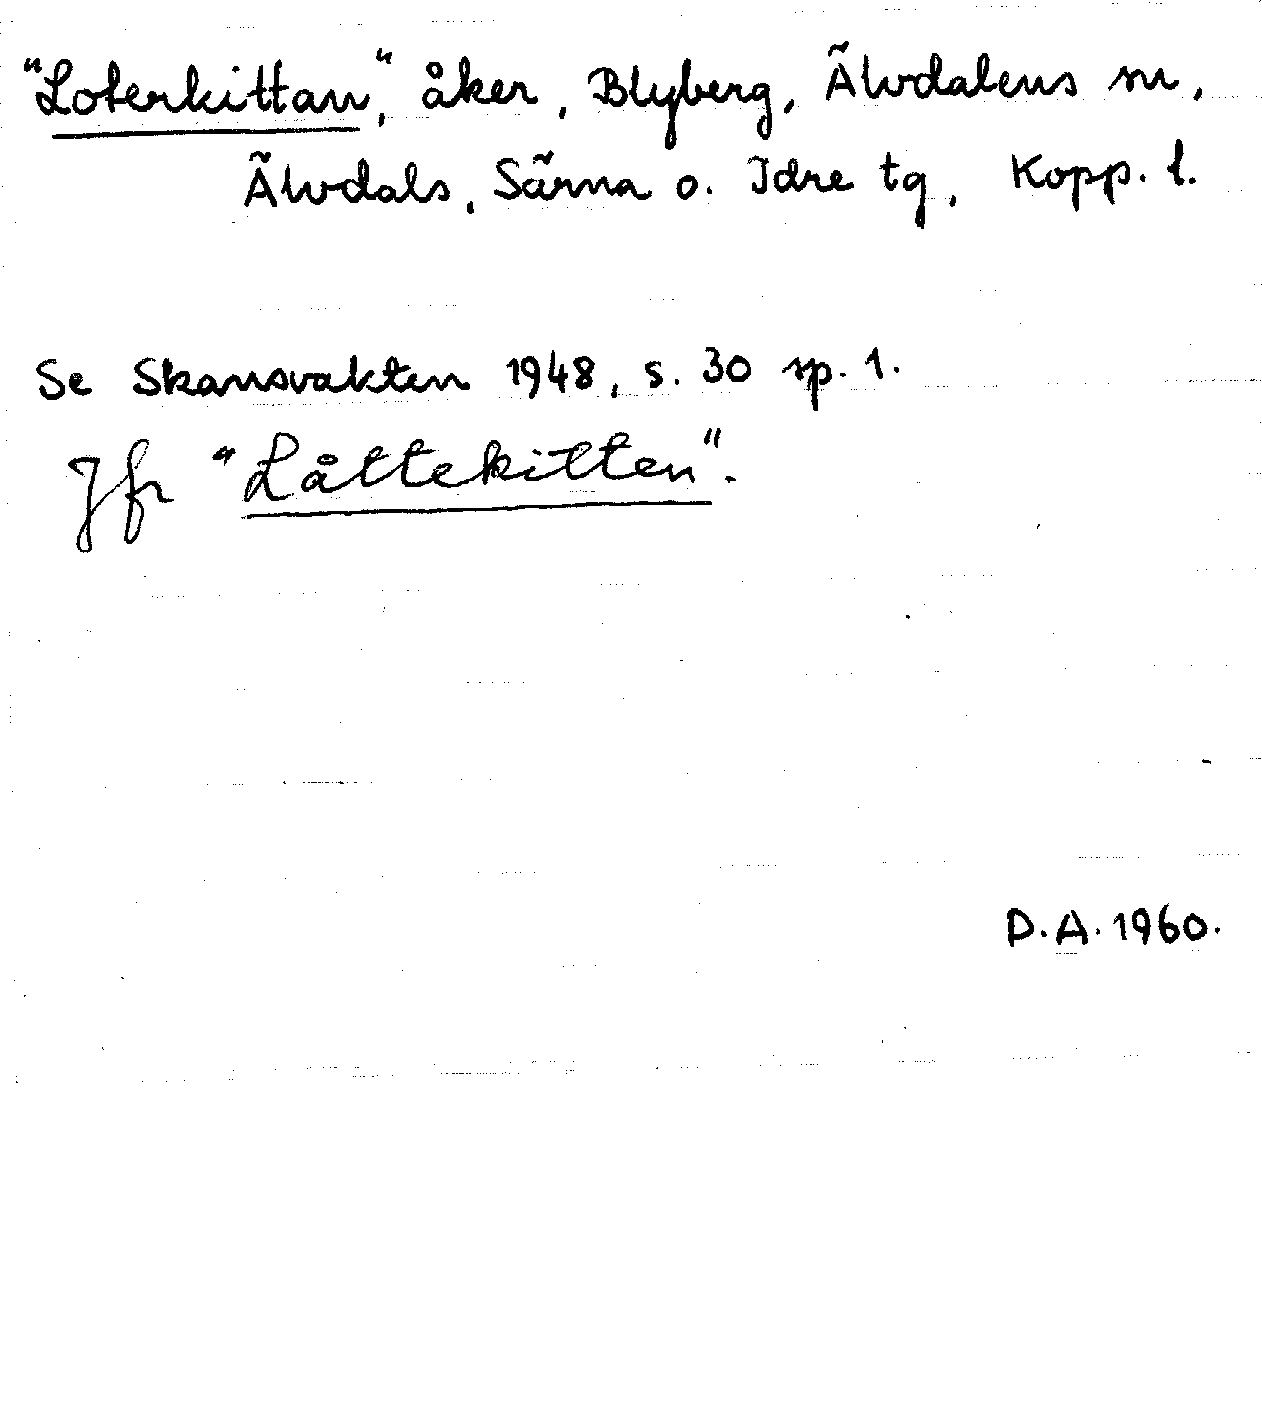 "Loterkittan", åker, Blyberg, Älvdalens sn,
Älvdals, Särna o. Idre tg, Kopp. l.
Se Skansvakten 1948, s. 30 sp. 1.
Jfr "Låttekitten".
D.A. 1960.